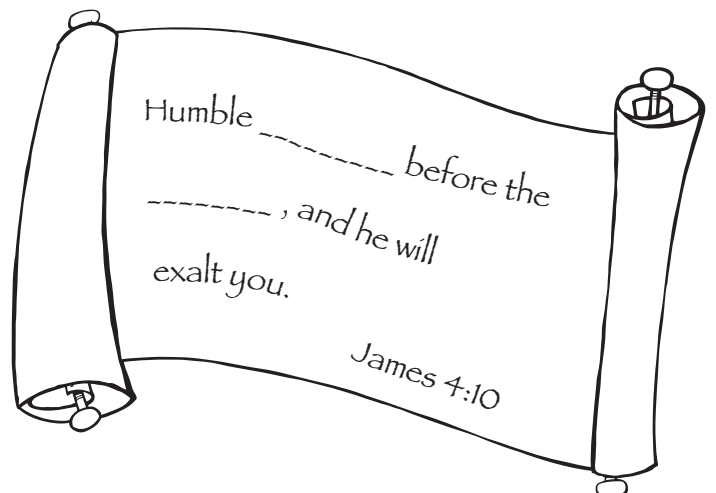 Humble _________ before the
________ , and he will
exalt you.
James 4:10